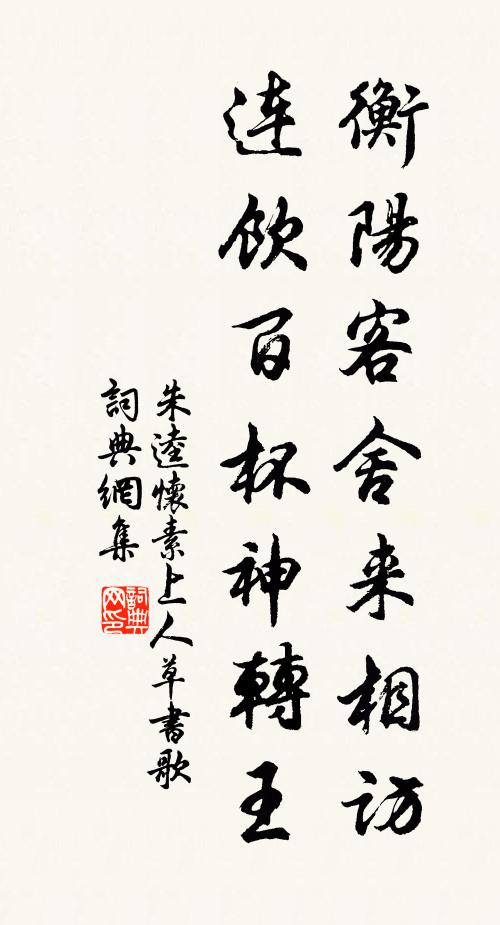 衡陽客舍来相訪
連飲百杯神轉王
朱逵懷素上人草書歌
詞典網集
詞典网印